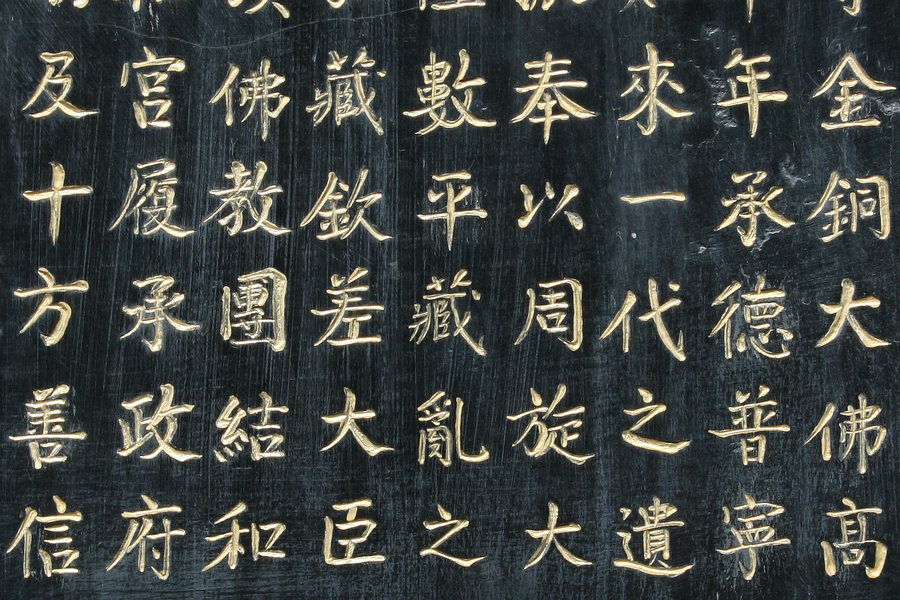 金銅大佛高
年承德普寧
來一代之遺
奉以周旋大
數平藏亂之
藏欽差大臣
佛教團結和
宮履承政府
及十方善信